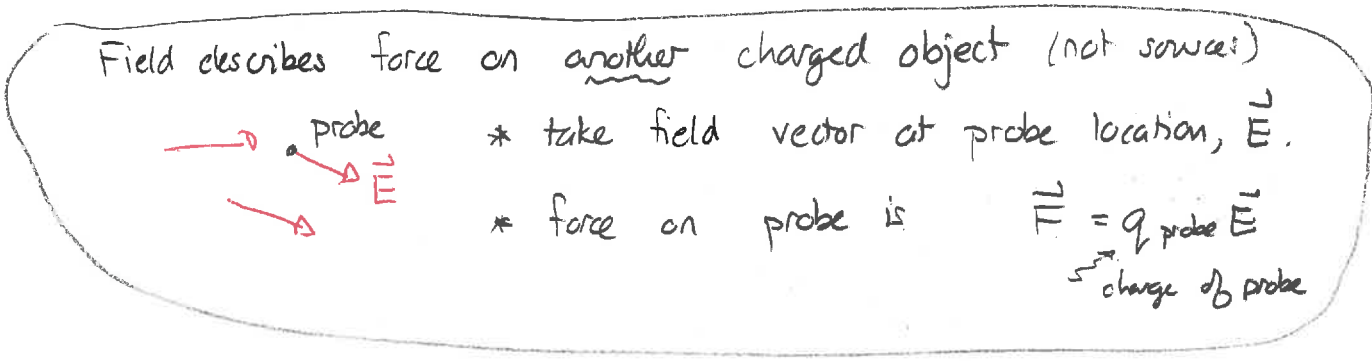 Field describes force on another charged object (not sources)
probe * take field vector at probe location, E⃗.
E⃗
* force on probe is F⃗ = q probe E⃗
charge of probe